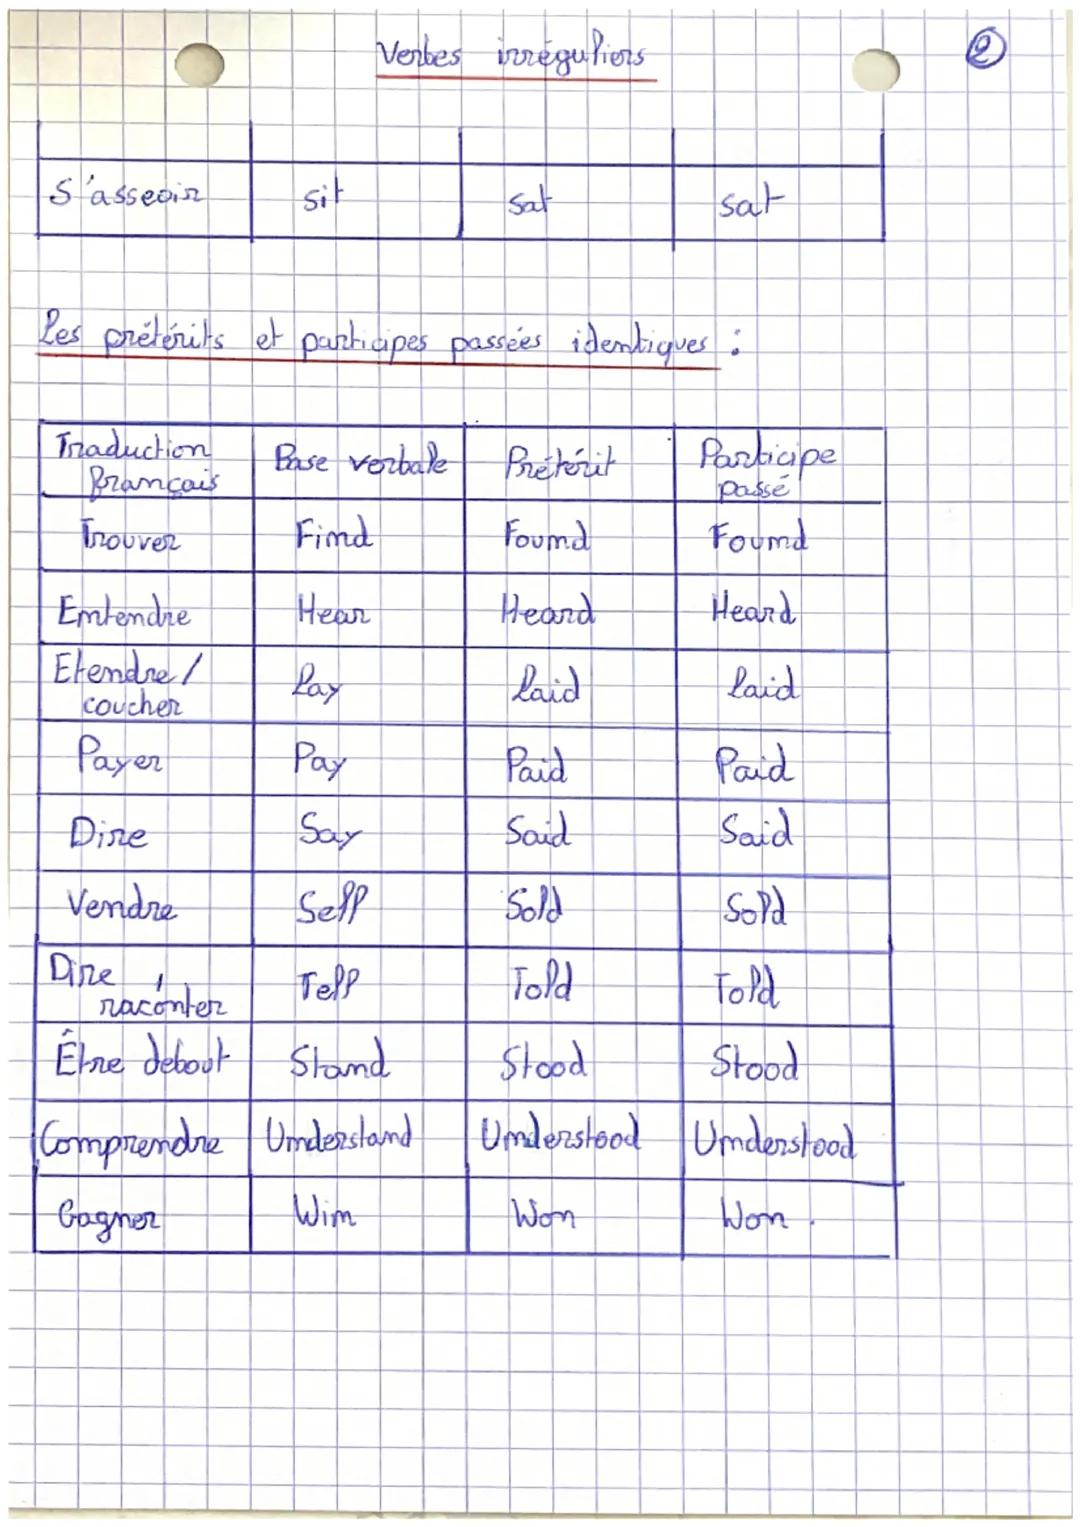 Verbes irréguliers
2
S'asseoir sit sat sat
Les prétérits et participes passées identiques :
Traduction Base verbale Prétérit Participe
Français passé
Trouver Find Found Found
Entendre Hear Heard Heard
Etendre/
coucher Lay laid laid
Payer Pay Paid Paid
Dire Say Said Said
Vendre Sell Sold Sold
Dire,
raconter Tell Told Told
Être debout Stand Stood Stood
Comprendre Understand Understood Understood
Gagner Win Won Won.